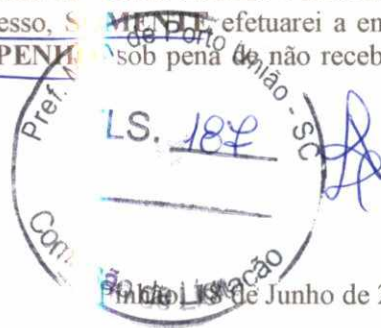 esso, SOMENTE efetuarei a en
PENH sob pena de não receb
Pref. M de Porto União - SC
LS. 187
Com de Licitação
de Junho de 2